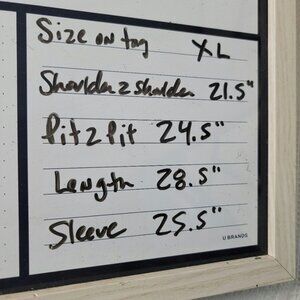 Size on tag XL
Shoulder 2 shoulder 21.5"
Pit 2 Pit 24.5"
Length 28.5"
Sleeve 25.5"
U BRANDS